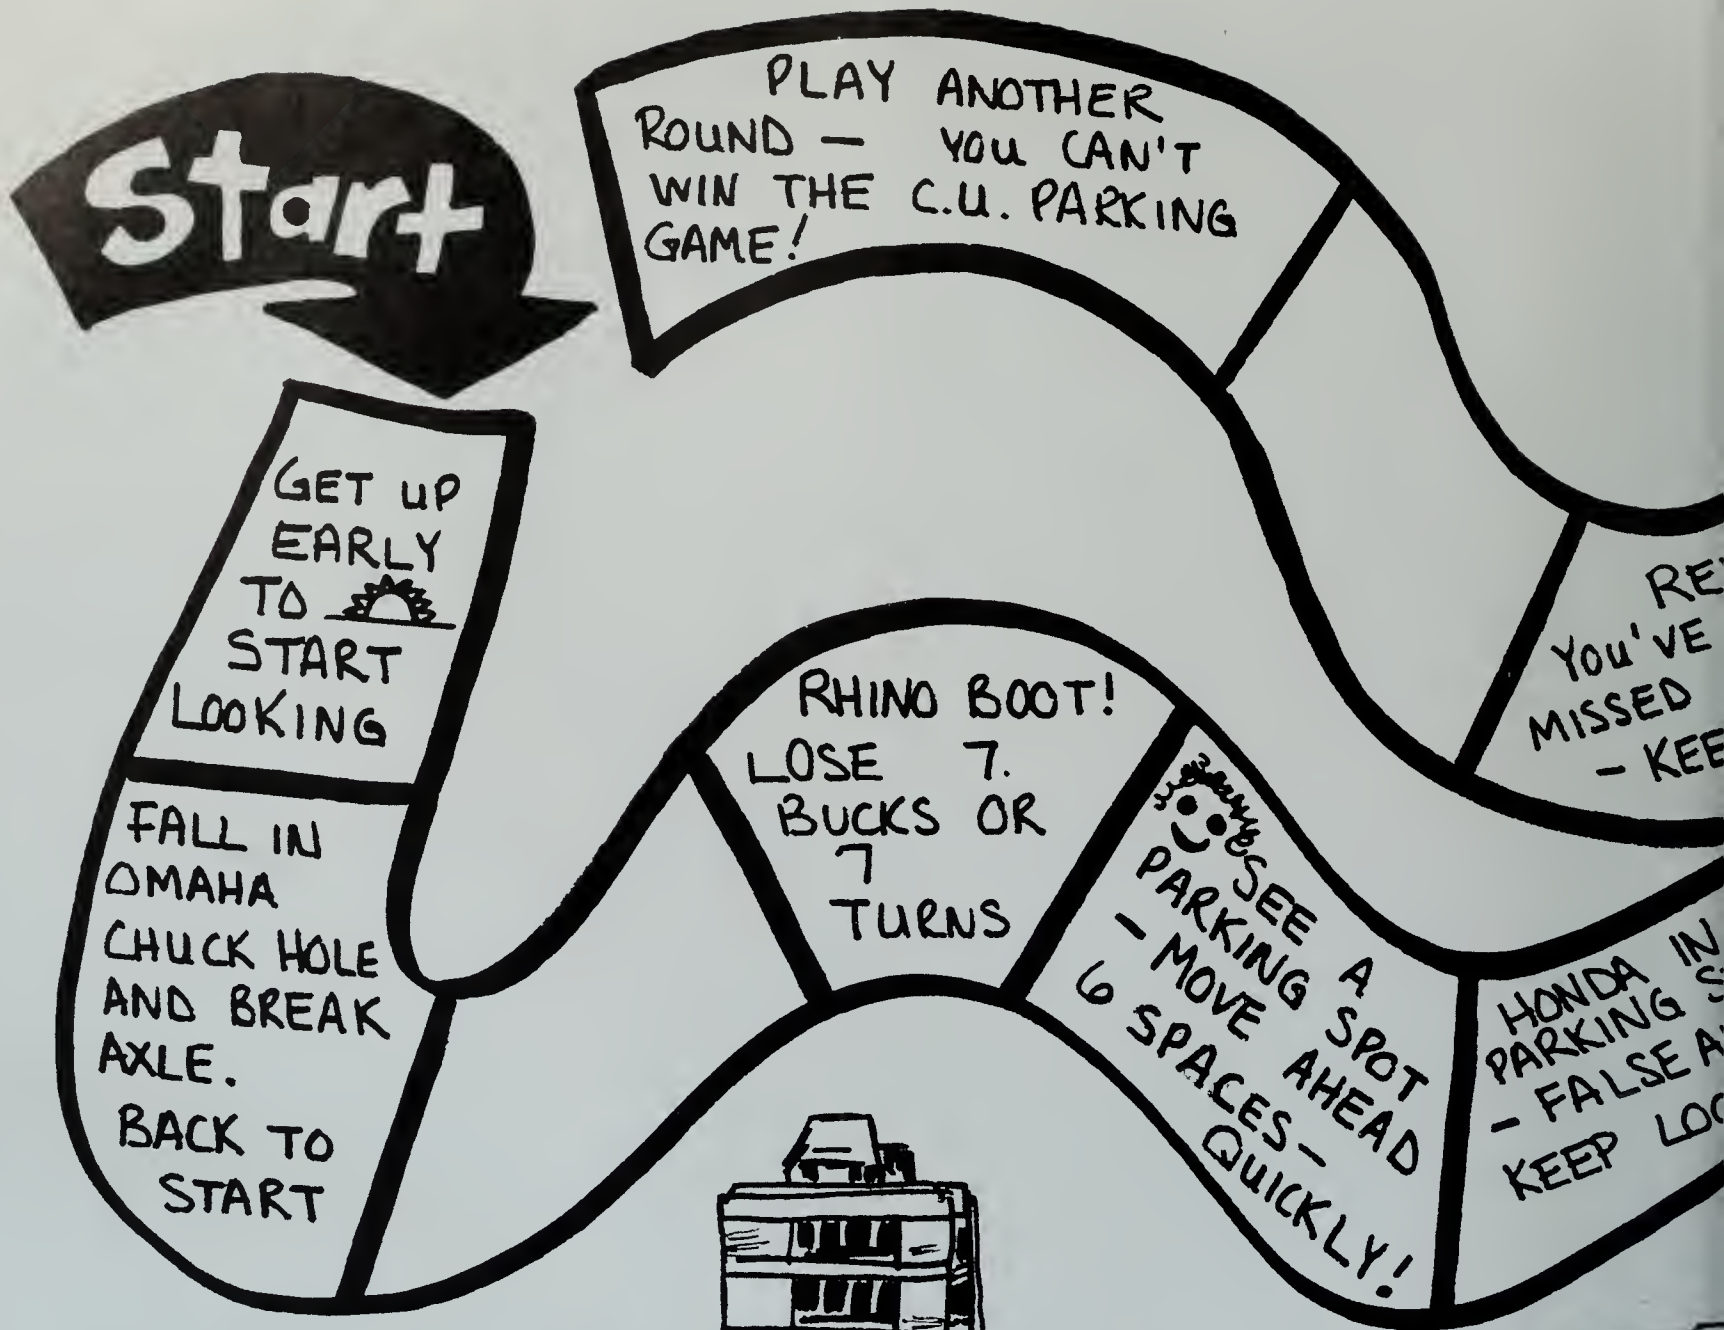 Start
PLAY ANOTHER
ROUND — YOU CAN'T
WIN THE C.U. PARKING
GAME!
GET UP
EARLY
TO
START
LOOKING
FALL IN
OMAHA
CHUCK HOLE
AND BREAK
AXLE.
BACK TO
START
RHINO BOOT!
LOSE 7.
BUCKS OR
7
TURNS
SEE A
PARKING SPOT
- MOVE AHEAD
6 SPACES-
QUICKLY!
HONDA IN
PARKING
- FALSE
KEEP
YOU'VE
MISSED
-